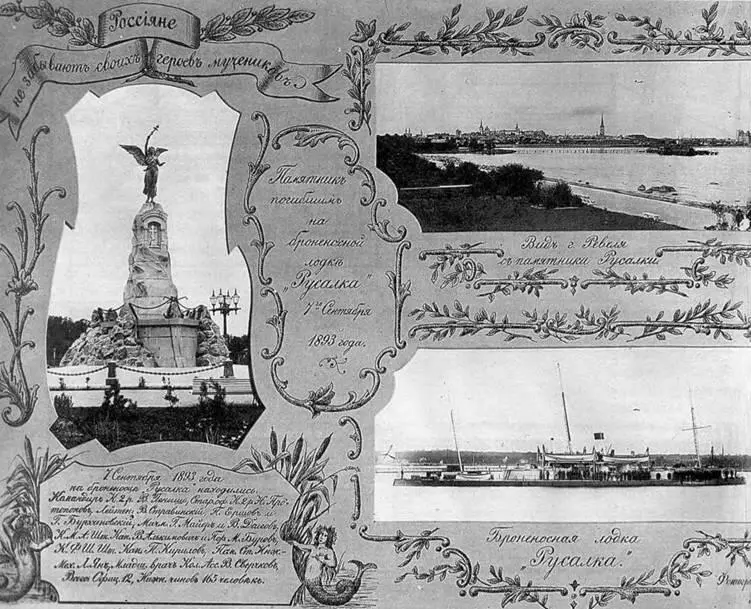 Россіяне
не забываютъ своихъ героевъ мучениковъ
Памятникъ
погибшимъ
на
броненосной
лодкѣ
„Русалка"
7го Сентября
1893 года.
Видъ г. Ревеля
съ памятника Русалки
7 Сентября 1893 года
на броненосцѣ Русалка находились:
Командиръ К. 2 р. В. Іенишъ, Стар. оф. К. 2 р. Н. Про-
топоповъ, Лейтен. В. Стравинскій, П. Ершовъ и
Г. Бурхановскій, Мичм. Г. Майеръ и В. Дагевъ,
К. М. А. Шт. Кап. В. Алкимовичъ и Пор. М. Буровъ,
К. Ф. Ш. Шт. Кап. П. Кириловъ, Кап. Ст. Инж.
Мех. Л. Янъ, Младш. врачъ Кол. Асс. В. Сверчковъ,
Всего Офиц. 12, Нижн. чиновъ 165 человѣкъ.
Броненосная лодка
„Русалка".